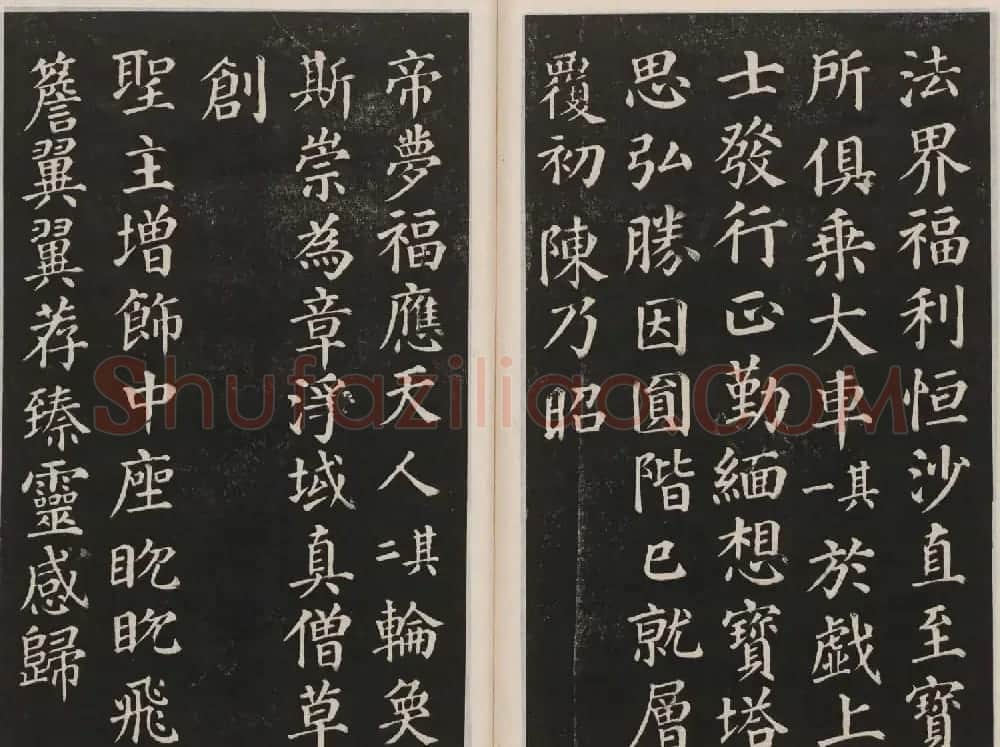 法界福利恒沙直至寶
所俱乗大車其一於戯上
士發行正勤緬想寶塔
思弘勝因圓階已就層
覆初陳乃昭
帝夢福應天人其二輪奐
斯崇為章淨域真僧草
創
聖主增飾中座眈眈飛
簷翼翼荐臻靈感歸
Shufaziliao.COM